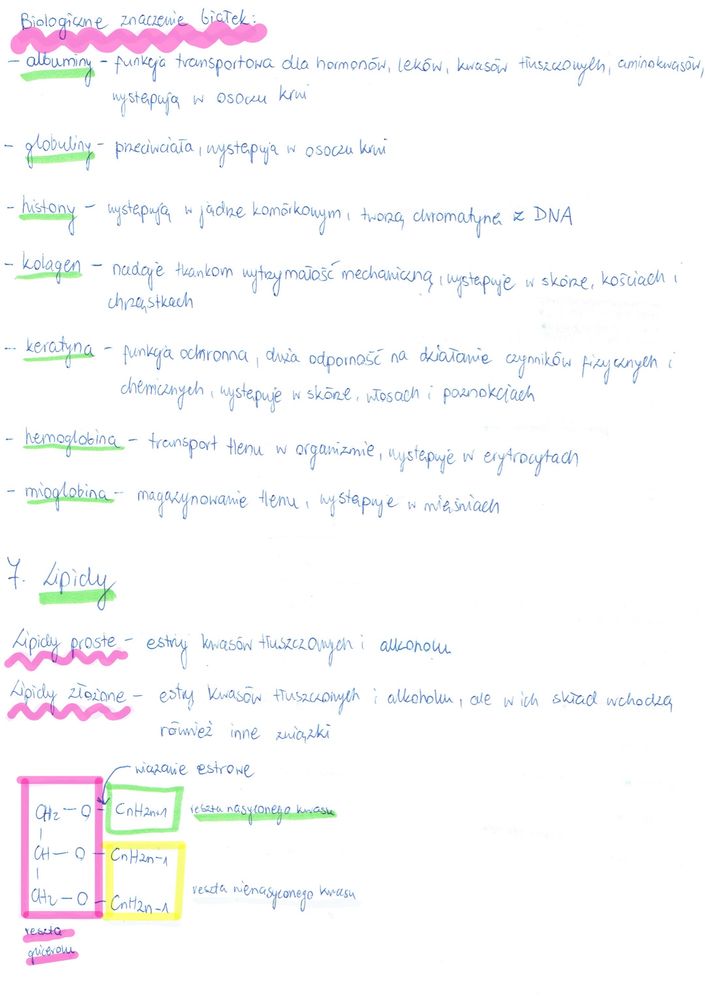 Biologiczne znaczenie białek:
- albuminy - funkcja transportowa dla hormonów, leków, kwasów tłuszczowych, aminokwasów,
występują w osoczu krwi
- globuliny - przeciwciała, występują w osoczu krwi
- histony - występują w jądrze komórkowym, tworzą chromatynę z DNA
- kolagen - nadaje tkankom wytrzymałość mechaniczną, występuje w skórze, kościach i
chrząstkach
- keratyna - funkcja ochronna, duża odporność na działanie czynników fizycznych i
chemicznych, występuje w skórze, włosach i paznokciach
- hemoglobina - transport tlenu w organizmie, występuje w erytrocytach
- mioglobina - magazynowanie tlenu, występuje w mięśniach
7. Lipidy
Lipidy proste - estry kwasów tłuszczowych i alkoholu
Lipidy złożone - estry kwasów tłuszczowych i alkoholu, ale w ich skład wchodzą
również inne związki
wiązanie estrowe
CH2 - O - CnH2n+1 reszta nasyconego kwasu
CH - O - CnH2n-1
reszta nienasyconego kwasu
CH2 - O - CnH2n-1
reszta
glicerolu